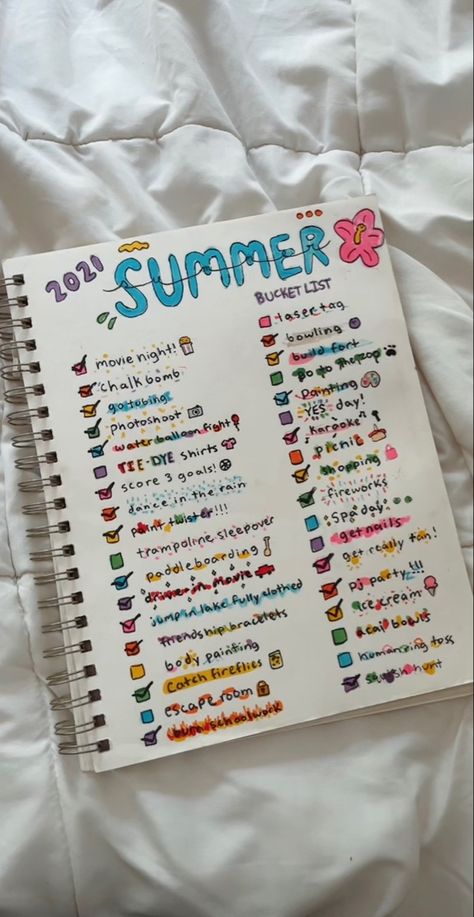 2021
SUMMER
BUCKET LIST
movie night!
chalk bomb
go tubing
photoshoot
water balloon fight
TIE-DYE shirts
score 3 goals!
dance in the rain
paint twister!!!
trampoline sleepover
paddle boarding
drive in movie
jump in lake fully clothed
friendship bracelets
body painting
catch fireflies
escape room
burn schoolwork
laser tag
bowling
build fort
go to the zoo
painting
YES day!
karaoke
picnic
shopping
fireworks
spa day
get nails
get really tan!
pj party!!!
ice cream
acai bowls